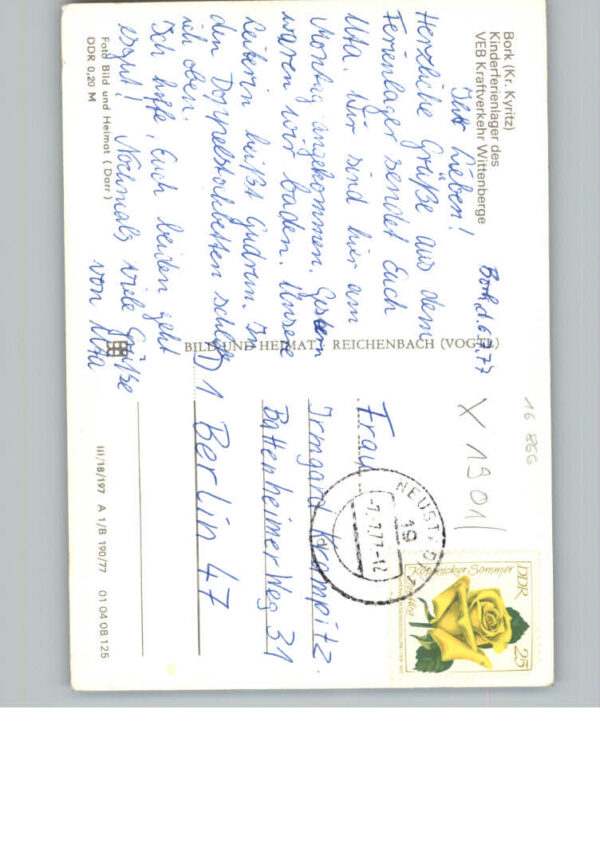 Bork (Kr. Kyritz)
Kinderferienlager des
VEB Kraftverkehr Wittenberge
Bork, d. 6.7.77
Ihr Lieben!
Herzliche Grüße aus dem
Ferienlager sendet Euch
Uta. Wir sind hier am
Montag angekommen. Gestern
waren wir baden. Unsere
Leiterin heißt Gudrun. In
den Doppelstockbetten schlafe
ich oben.
Ich hoffe, Euch beiden geht
es gut! Nochmals viele Grüße
von Uta
Foto Bild und Heimat (Darr)
DDR 0,20 M
BILD UND HEIMAT REICHENBACH (VOGTL)
16 866
X 1901
NEUSTAD
19
-7.7.77-12
DDR
25
Sommer
Frau
Irmgard Krampitz
Battenheimer Weg 31
D 1 Berlin 47
III/18/197 A 1/B 190/77 01 04 08 125